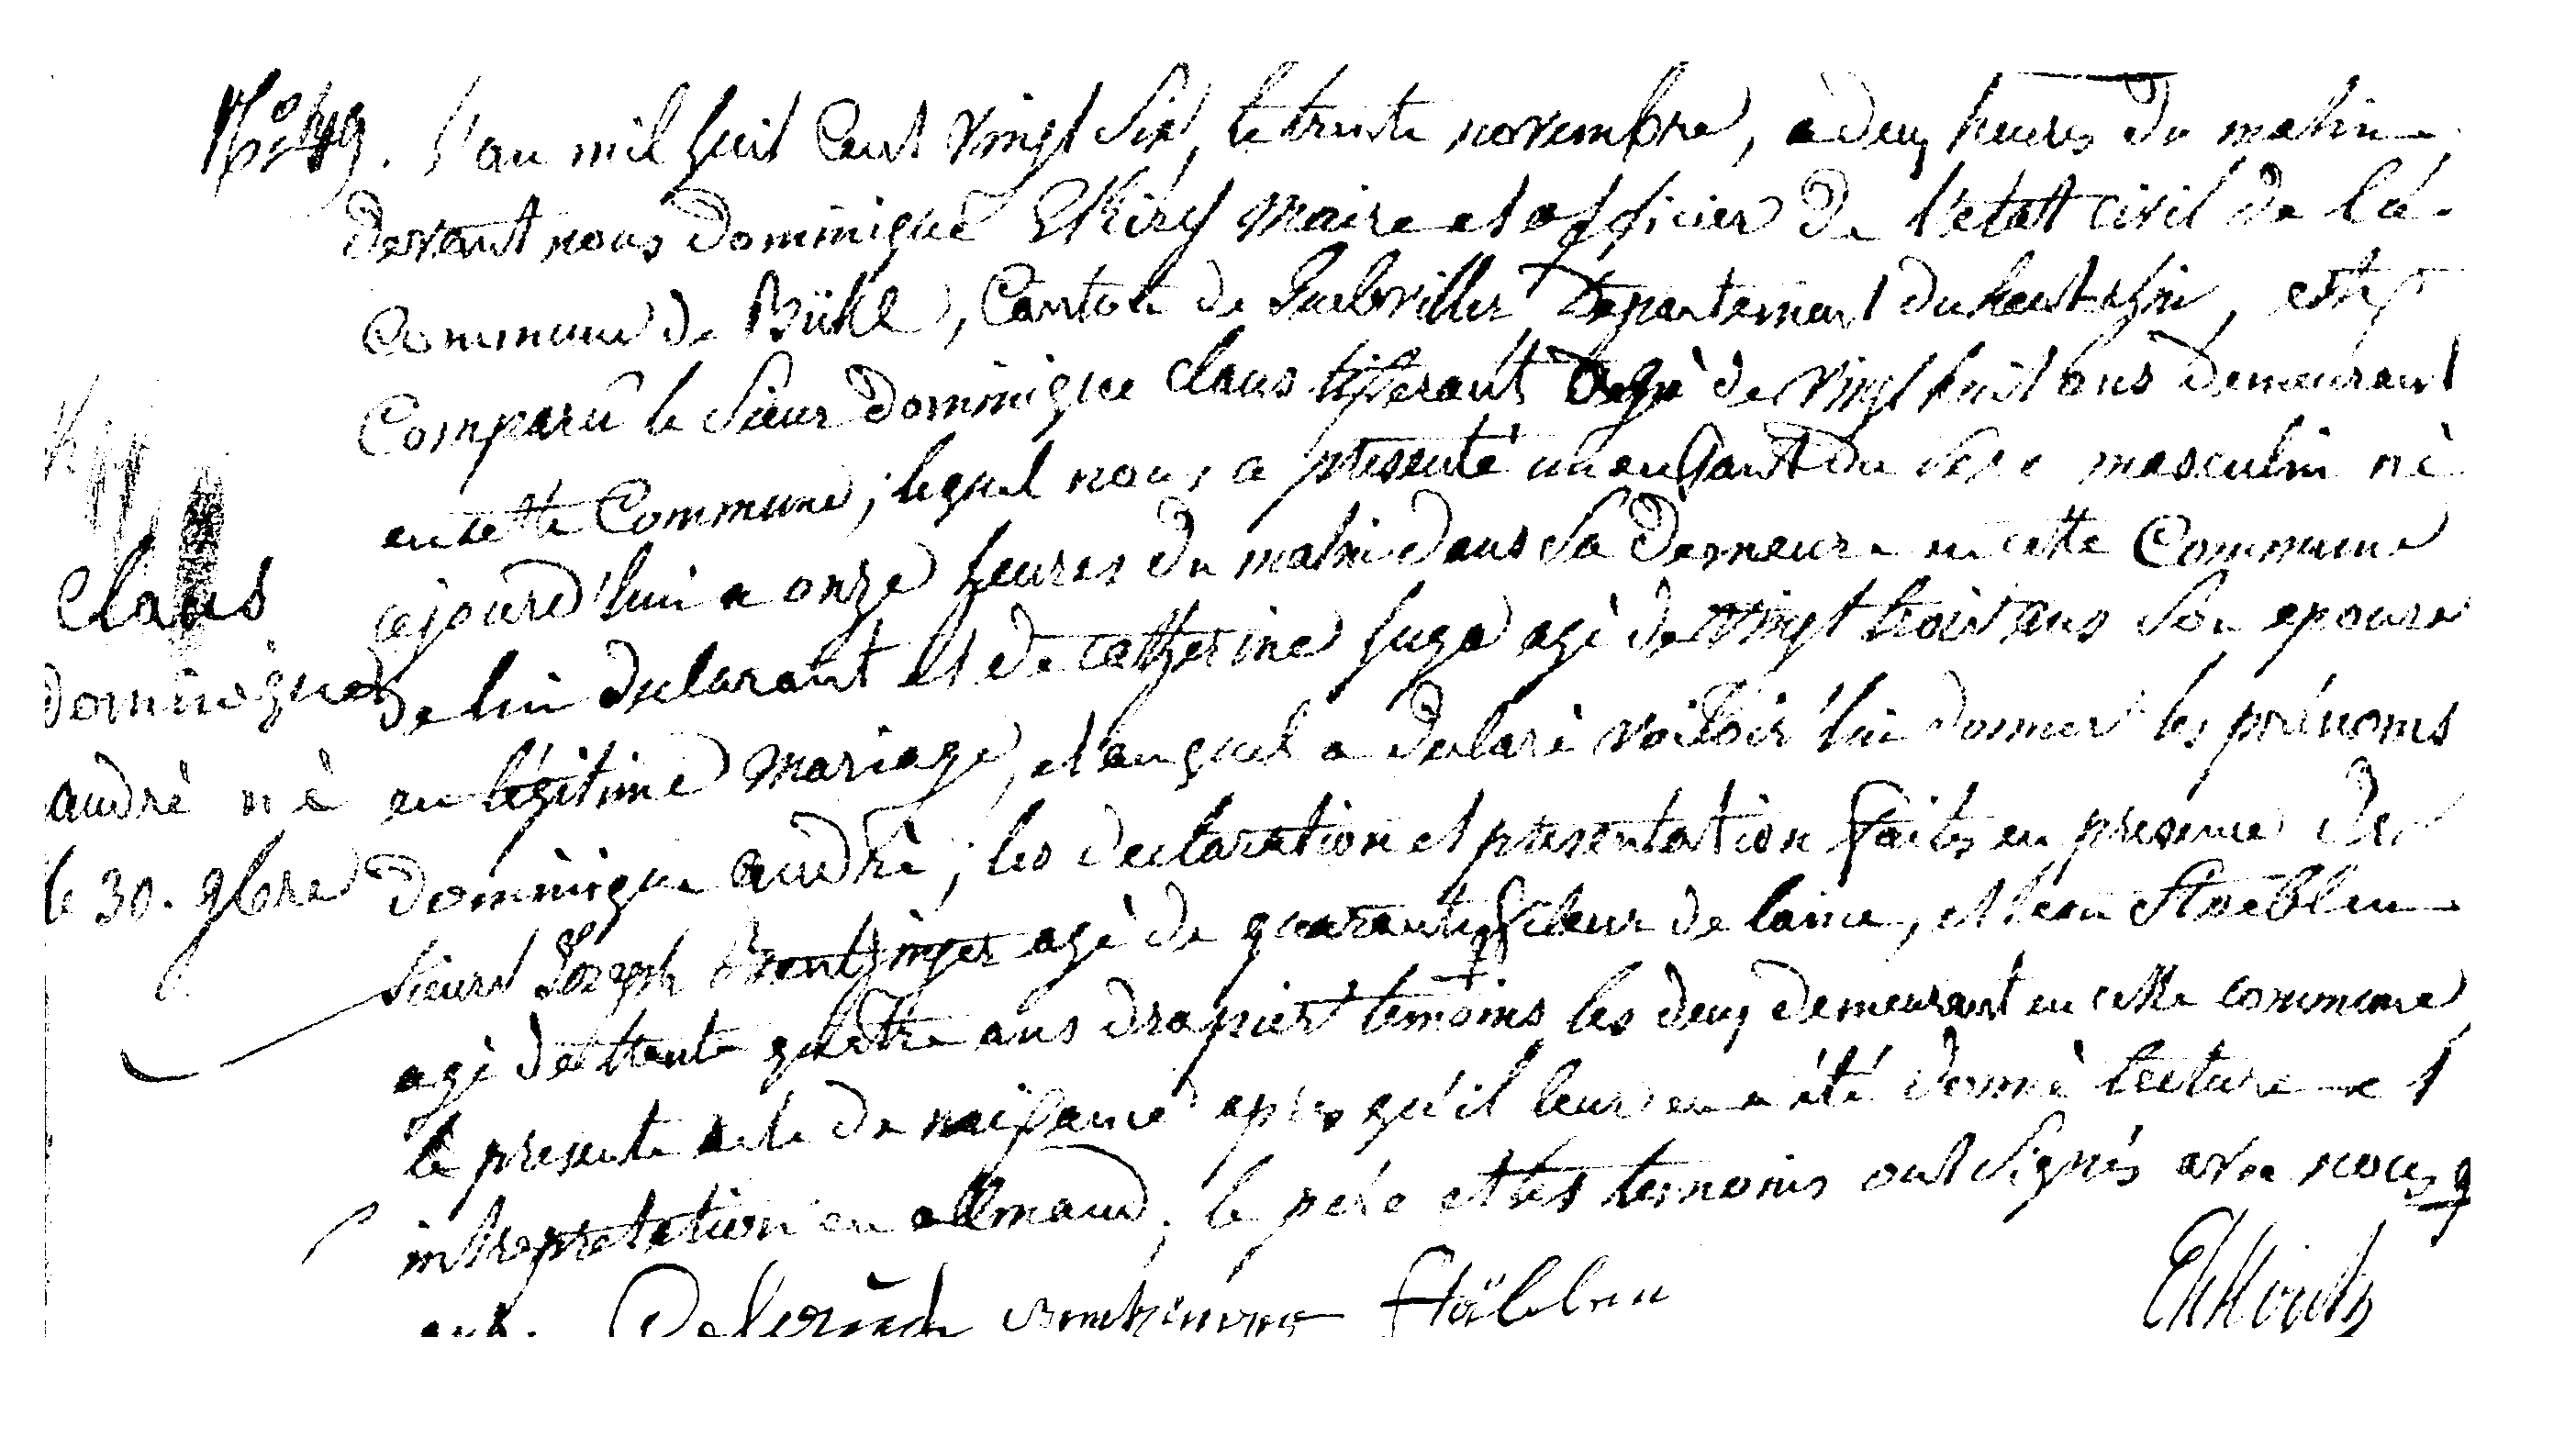 N° 49. L'an mil huit Cent Vingt Six, le trente novembre, à deux heures du matin
devant nous Dominique Ekiry maire et officier de l'etat civil de la
Commune de Bühl, Canton de Guebviller Departement du haut rhin, est
Comparu le Sieur Dominique Claus tisserant agé de Vingt huit ans demeurant
en cette Commune; lequel nous a présenté un enfant du Sexe masculin né
cejourd'hui a onze heures du matin dans Sa Demeure en cette Commune
de lui declarant et de catherine huga agé de Vingt trois ans Son epouse
en légitime mariage, et auquel a declaré vouloir lui donner les prénoms
Dominique andré; les declaration et presentation faites en presence des
Sieurs Joseph agé de quarante fileur de laine, et Jean Stoeblen
agé de trente quattre ans drapier temoins les deux demeurant en cette commune
le presente acte de naissance apres qu'il leur en a été donné lecture et
intrepretation en allmand; le pére et les temoins ont Signés avec nous
Claus
Dominique
andré né
le 30. 9bre
Stäblen